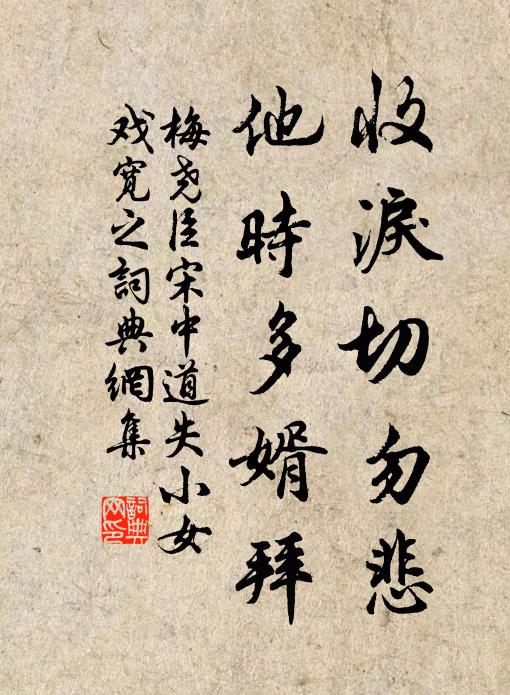 收淚切勿悲
他時多婿拜
梅尧臣宋中道失小女
戏宽之詞典網集
詞典
网印